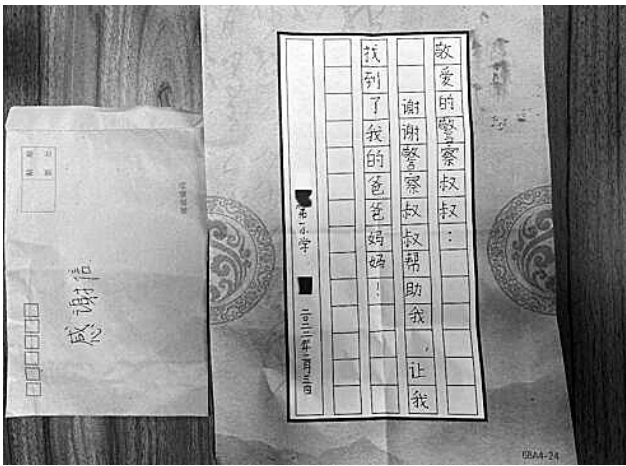 敬爱的警察叔叔：
谢谢警察叔叔帮助我，让我
找到了我的爸爸妈妈！
第一小学
二〇二二年二月三日
感谢信
68A4-24